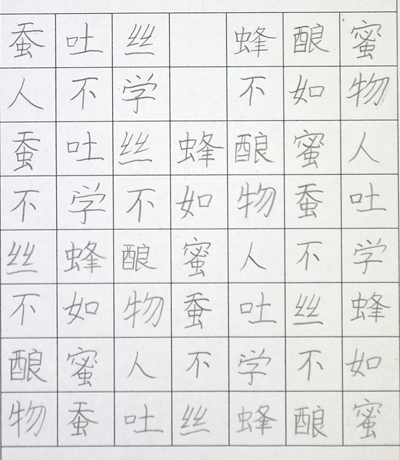 蚕吐丝 蜂酿蜜
人不学 不如物
蚕吐丝蜂酿蜜人
不学不如物蚕吐
丝蜂酿蜜人不学
不如物蚕吐丝蜂
酿蜜人不学不如
物蚕吐丝蜂酿蜜